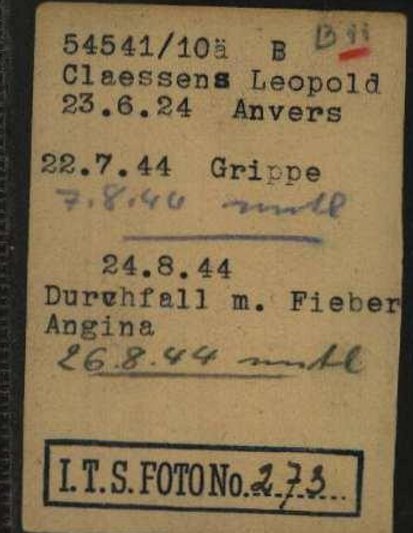 54541/10ä B B
Claessens Leopold
23.6.24 Anvers
22.7.44 Grippe
7.8.44 entl
24.8.44
Durchfall m. Fieber
Angina
26.8.44 entl
I.T.S. FOTO No. 273